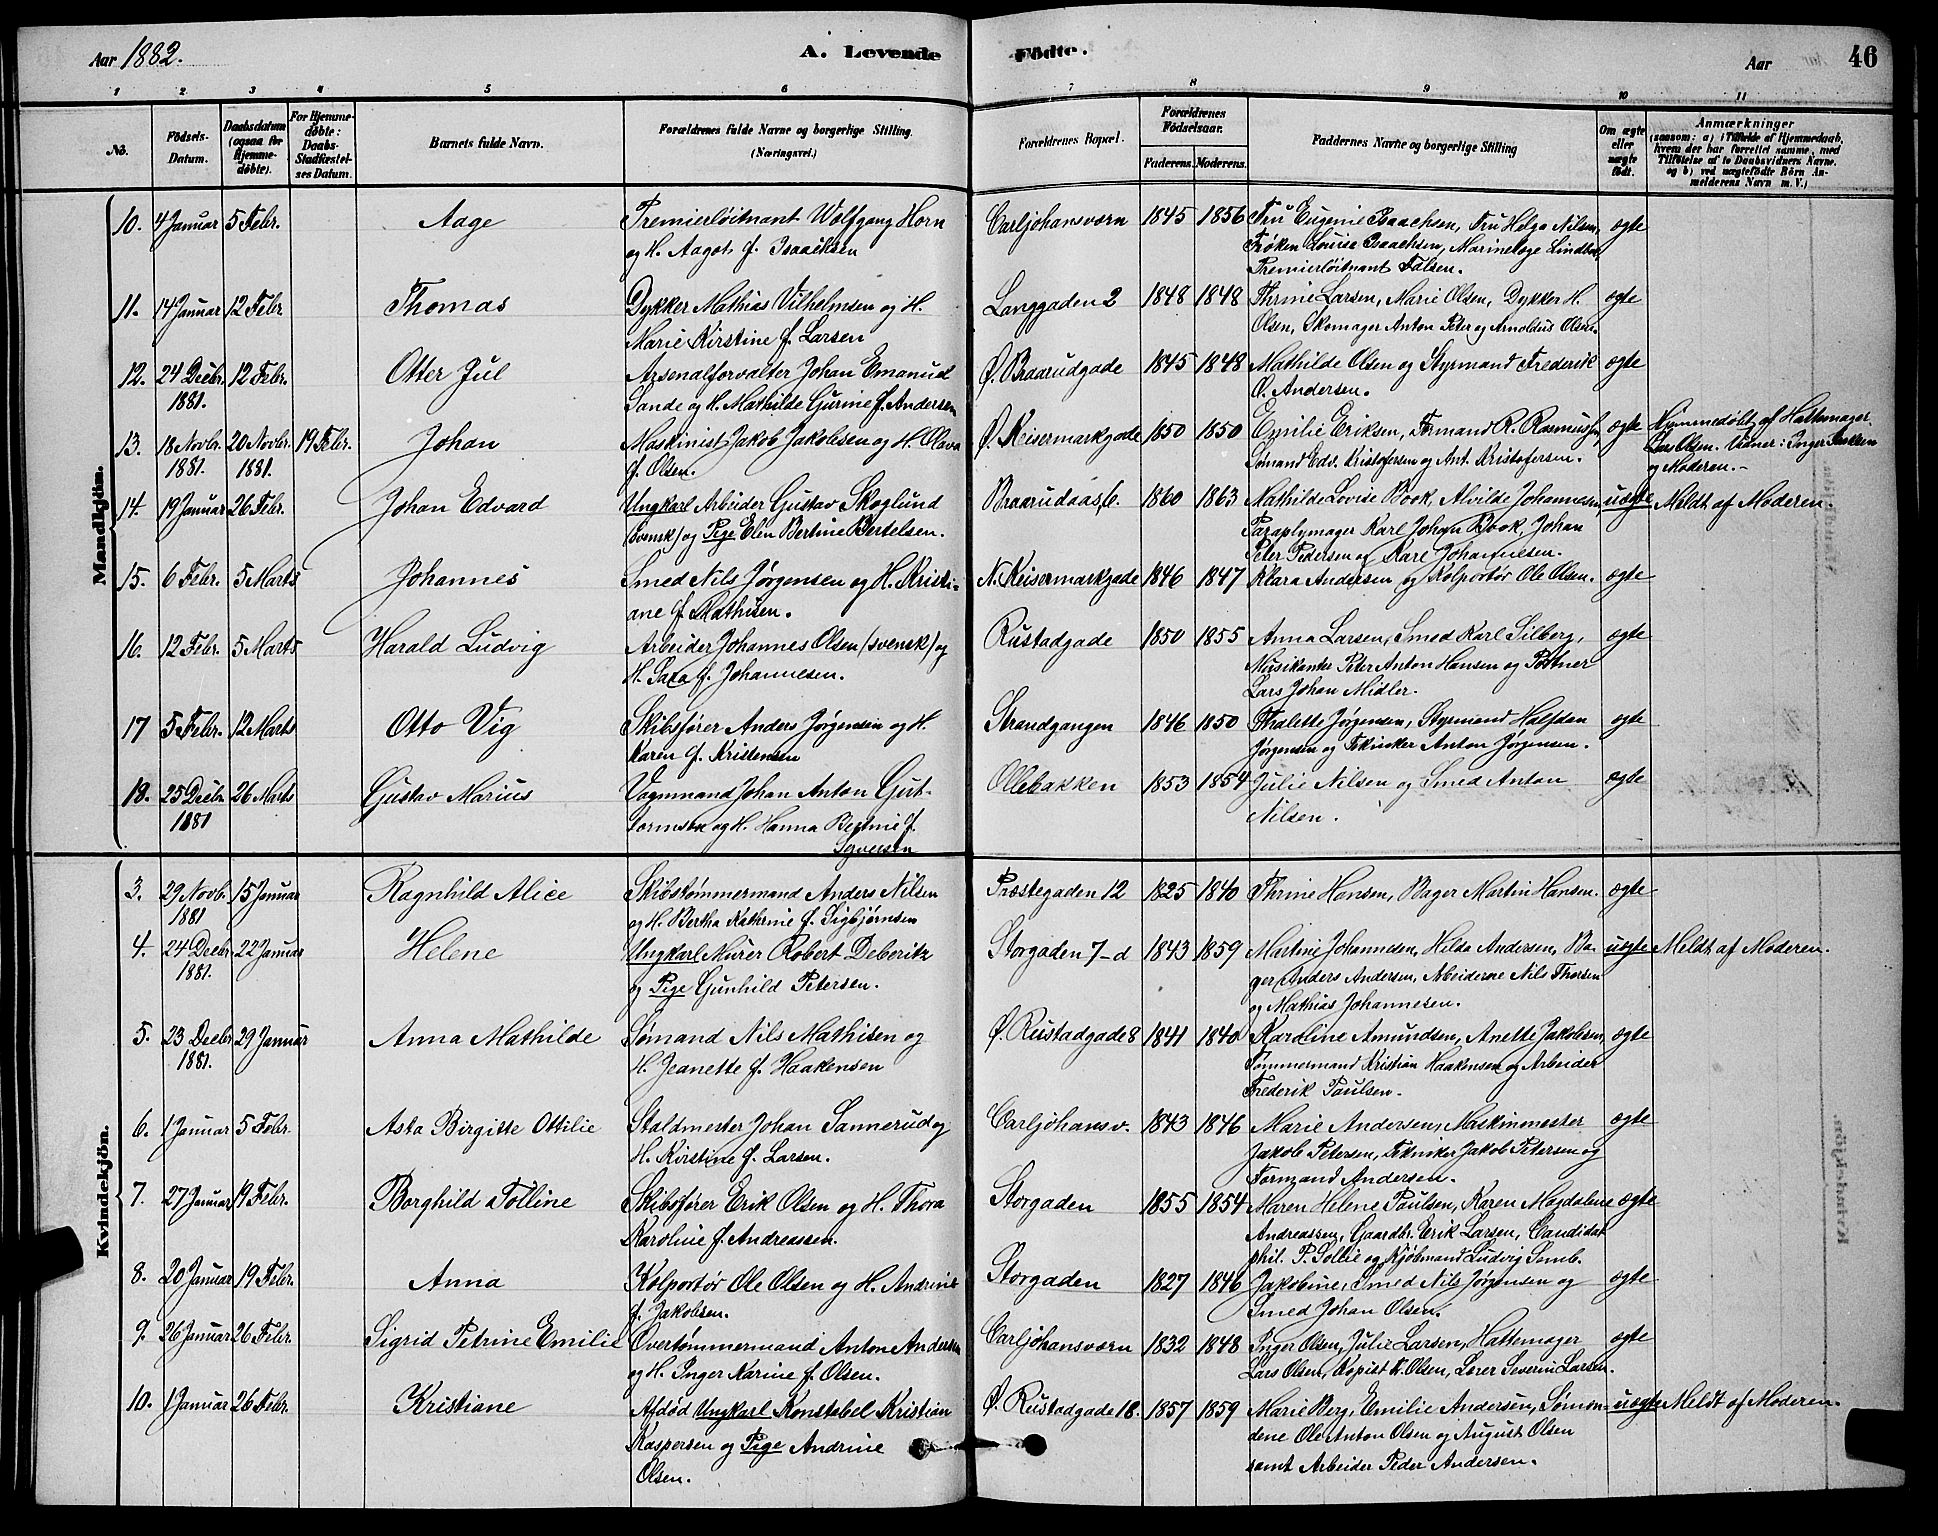 Aar 1882. A. Levende Födte. Aar 46
1 2 3 4 5 6 7 8 9 10 11
No. Födsels-Datum. Daabsdatum (ogsaa for Hjemmedøbte). For Hjemmedøbte: Daabs-Stadfestelses Datum. Barnets fulde Navn. Forældrenes fulde Navne og borgerlige Stilling. (Næringsvei.) Forældrenes Bopæl. Forældrenes Födselsaar. Faderens. Moderens. Faddernes Navne og borgerlige Stilling Om ægte eller uægte födt. Anmærkninger (saasom: a) i Tilfælde af Hjemmedaab, hvem der har forrettet samme, med Tilföielse af to Daabsvidners Navne, og b) ved uægtefödte Börn Anmelderens Navn m. V.)
Mandkjön.
10. 4 Januar 5 Febr. Aage Premierløitnant Wolfgang Horn Carljohansværn 1845 1856 Fru Eugenie Isaachsen, Fru Helga Nilsen, ægte
og H. Aagot f. Isaachsen Frøken Louise Isaachsen, Marinelæge
Premierløitnant Falsen.
11. 14 Januar 12 Febr Thomas Dykker Mathias Vilhelmsen og H. Langgaden 2 1848 1848 Thrine Larsen, Marie Olsen, Dykker H. ægte
Marie Kirstine f. Larsen Olsen, Skomager Anton Peter og Arnoldus Olsen.
12. 24 Decbr. 12 Febr. Otter Jul Arsenalforvalter Johan Emanuel Ø. Braarudgade 1845 1848 Mathilde Olsen og Styrmand Frederik ægte
1881. Sande og H. Mathilde Gurine f. Andersen O. Andersen.
13. 18 Novbr. 20 Novbr. 19 Febr. Johan Maskinist Jakob Jakobsen og H. Olava Ø. Keisermarkgade 1850 1850 Emilie Eriksen, Formand R. Rasmussen, ægte Hjemmedøbt af Hattemager
1881. 1881. f. Olsen. Sømand Edv. Kristofersen og Ant. Kristofersen. Lars Olsen. Vidner: Inger
og Moderen.-
14. 19 Januar 26 Febr. Johan Edvard Ungkarl Arbeider Gustav Skoglund Braarudaas, 6. 1860 1863 Mathilde Lovise Book, Alvilde Johannesen, uægte Meldt af Moderen.
(svensk) og Pige Elen Bertine Bertelsen. Paraplymager Karl Johan Book, Johan
Peter Pedersen og Karl Johannesen.
15. 6 Febr. 5 Marts Johannes Smed Nils Jørgensen og H. Kristi- N. Keisermarkgade 1846 1847 Klara Andersen og Kolportør Ole Olsen. ægte
ane f. Mathisen.
16. 12 Febr. 5 Marts Harald Ludvig Arbeider Johannes Olsen (svensk) og Rustadgade 1850 1855 Anna Larsen, Smed Karl Silberg, ægte
H. Sara f. Johannesen. Musikanter Peter Anton Hansen og Portner
Lars Johan Midler.
17 5 Febr. 12 Marts Otto Vig Skibsfører Anders Jørgensen og H. Strandgangen 1846 1850 Thalette Jørgensen, Styrmand Halfdan ægte
Karen f. Kristensen Jørgensen og Tekniker Anton Jørgensen.
18. 25 Decbr 26 Marts Gustav Marius Vognmand Johan Anton Gut- Ollebakken 1853 1854 Julie Nilsen og Smed Anton ægte
1881 tormsen og H. Hanna Bertine f. Nilsen.
Syversen
Kvindekjön.
3. 29 Novb. 15 Januar Ragnhild Alice Skibstømmermand Anders Nilsen Præstegaden 12 1825 1840 Thrine Hansen, Bager Martin Hansen. ægte
1881 og H. Bertha Kathrine f. Sigbjørnsen
4. 24 Decbr 22 Januar Helene Ungkarl Murer Robert Deberitz Storgaden 7-d 1843 1859 Martine Johannesen, Hilda Andersen, Ba- uægte Meldt af Moderen.
1881. og Pige Gunhild Petersen. ger Anders Andersen, Arbeiderne Nils Thorsen
og Mathias Johannesen.
5. 23 Decbr 29 Januar Anna Mathilde Sømand Nils Mathisen og Ø. Rustadgade 8 1841 1840 Karoline Amundsen, Anette Jakobsen, ægte
1881. H. Jeanette f. Haakensen Tømmermand Kristian Haakensen og Arbeider
Frederik Paulsen.
6. 1 Januar 5 Febr. Asta Birgitte Ottilie Staldmester Johan Sannerud og Carljohansv. 1843 1846 Marie Andersen, Maskinmester ægte
H. Kirstine f. Larsen. Jakob Petersen, Tekniker Jakob Petersen og
Formand Andersen.
7. 27 Januar 19 Febr. Borghild Tolline Skibsfører Erik Olsen og H. Thora Storgaden 1855 1854 Maren Helene Paulsen, Karen Magdalene ægte
Karoline f. Andreassen. Andreassen, Gaardbr. Erik Larsen, Candidat
phil. P. Sollie og Kjøbmand Ludvig Semb.
8. 20 Januar 19 Febr. Anna Kolportør Ole Olsen og H. Andrine Storgaden 1827 1846 Jakobine, Smed Nils Jørgensen og ægte
f. Jakobsen. Smed Johan Olsen.
9. 26 Januar 26 Febr. Sigrid Petrine Emilie Overtømmermand Anton Andersen Carljohansværn 1832 1848 Inger Olsen, Julie Larsen, Hattemager ægte
og H. Inger Karine f. Olsen. Lars Olsen, Kopist K. Olsen, Lærer Severin Larsen.
10. 1 Januar 26 Febr. Kristiane Afdød Ungkarl Konstabel Kristian Ø. Rustadgade 18. 1857 1859 Marie Berg, Emilie Andersen, Sømæn- uægte Meldt af Moderen.
Kaspersen og Pige Andrine dene Ole Anton Olsen og August Olsen
Olsen. samt Arbeider Peder Andersen.